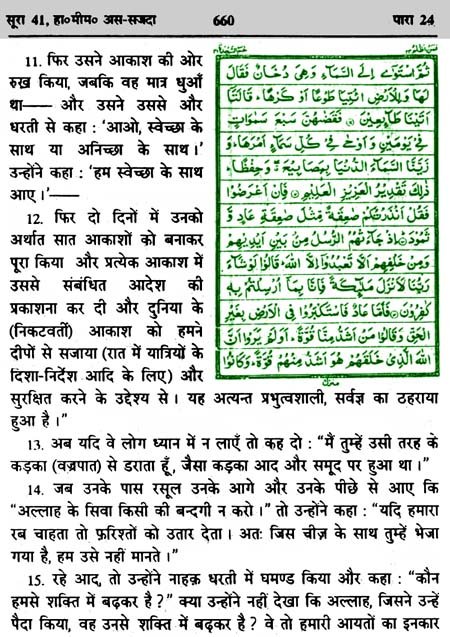 सूरा 41, हा०मीम० अस-सजदा
660
पारा 24
11. फिर उसने आकाश की ओर
रुख़ किया, जबकि वह मात्र धुआँ
था—— और उसने उससे और
धरती से कहा : 'आओ, स्वेच्छा के
साथ या अनिच्छा के साथ।'
उन्होंने कहा : 'हम स्वेच्छा के साथ
आए।'——
12. फिर दो दिनों में उनको
अर्थात सात आकाशों को बनाकर
पूरा किया और प्रत्येक आकाश में
उससे संबंधित आदेश की
प्रकाशना कर दी और दुनिया के
(निकटवर्ती) आकाश को हमने
दीपों से सजाया (रात में यात्रियों के
दिशा-निर्देश आदि के लिए) और
सुरक्षित करने के उद्देश्य से। यह अत्यन्त प्रभुत्वशाली, सर्वज्ञ का ठहराया
हुआ है।”
ثُمَّ اسْتَوٰۤى اِلَى السَّمَآءِ وَهِىَ دُخَانٌ فَقَالَ
لَهَا وَلِلْاَرْضِ ائْتِيَا طَوْعًا اَوْ كَرْهًا ؕ قَالَتَاۤ
اَتَيْنَا طَآئِعِيْنَ ۞ فَقَضٰىهُنَّ سَبْعَ سَمٰوَاتٍ
فِىْ يَوْمَيْنِ وَاَوْحٰى فِىْ كُلِّ سَمَآءٍ اَمْرَهَا ؕ وَ
زَيَّنَّا السَّمَآءَ الدُّنْيَا بِمَصَابِيْحَ ۖ وَحِفْظًا ؕ
ذٰلِكَ تَقْدِيْرُ الْعَزِيْزِ الْعَلِيْمِ ۞ فَاِنْ اَعْرَضُوْا
فَقُلْ اَنْذَرْتُكُمْ صٰعِقَةً مِّثْلَ صٰعِقَةِ عَادٍ وَّ
ثَمُوْدَ ۞ اِذْ جَآءَتْهُمُ الرُّسُلُ مِنْۢ بَيْنِ اَيْدِيْهِمْ
وَمِنْ خَلْفِهِمْ اَلَّا تَعْبُدُوْۤا اِلَّا اللّٰهَ ؕ قَالُوْا لَوْ شَآءَ
رَبُّنَا لَاَنْزَلَ مَلٰٓئِكَةً فَاِنَّا بِمَاۤ اُرْسِلْتُمْ بِهٖ
كٰفِرُوْنَ ۞ فَاَمَّا عَادٌ فَاسْتَكْبَرُوْا فِى الْاَرْضِ بِغَيْرِ
الْحَقِّ وَقَالُوْا مَنْ اَشَدُّ مِنَّا قُوَّةً ؕ اَوَلَمْ يَرَوْا اَنَّ
اللّٰهَ الَّذِىْ خَلَقَهُمْ هُوَ اَشَدُّ مِنْهُمْ قُوَّةً ؕ وَكَانُوْا
13. अब यदि वे लोग ध्यान में न लाएँ तो कह दो : “मैं तुम्हें उसी तरह के
कड़का (वज्रपात) से डराता हूँ, जैसा कड़का आद और समूद पर हुआ था।”
14. जब उनके पास रसूल उनके आगे और उनके पीछे से आए कि
“अल्लाह के सिवा किसी की बन्दगी न करो।” तो उन्होंने कहा : “यदि हमारा
रब चाहता तो फ़रिश्तों को उतार देता। अतः जिस चीज़ के साथ तुम्हें भेजा
गया है, हम उसे नहीं मानते।”
15. रहे आद, तो उन्होंने नाहक़ धरती में घमण्ड किया और कहा : “कौन
हमसे शक्ति में बढ़कर है?” क्या उन्होंने नहीं देखा कि अल्लाह, जिसने उन्हें
पैदा किया, वह उनसे शक्ति में बढ़कर है? वे तो हमारी आयतों का इनकार